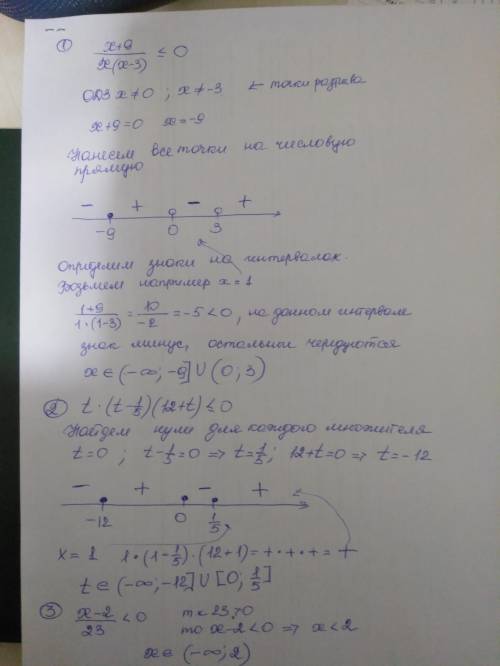 ① (x+9)/(x(x-3)) ≤ 0
ОДЗ x≠0 ; x≠-3 ← точки разрыва
x+9=0 x=-9
Нанесем все точки на числовую
прямую
- + - +
-9 0 3
Определим знаки на интервалах.
Возьмем например x=1
(1+9)/(1·(1-3)) = 10/-2 = -5<0, на данном интервале
знак минус, остальные чередуются
x∈(-∞;-9]∪(0;3)
② t·(t-1/5)(12+t)≤0
Найдем нули для каждого множителя
t=0 ; t-1/5=0 ⇒ t=1/5; 12+t=0 ⇒ t=-12
- + - +
-12 0 1/5
x=1 1·(1-1/5)·(12+1)=+·+·+=+
t∈(-∞;-12]∪[0;1/5]
③ (x-2)/23 <0 т.к 23>0
то x-2<0 ⇒ x<2
x∈(-∞;2)